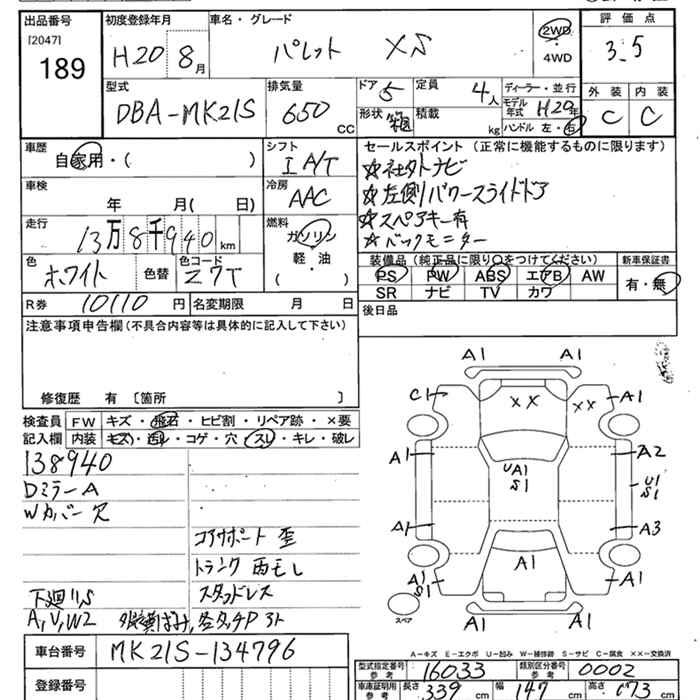 出品番号 初度登録年月 車名・グレード 評価点
[2047]
189
H20 8月 パレット XS 2WD ・ 4WD 3.5
型式 排気量 ドア 定員 ディーラー・並行 外装 内装
DBA-MK21S 650 CC 5 4人 モデル年式 H20年 C C
形状 箱 積載 kg ハンドル 左・右
車歴 シフト セールスポイント (正常に機能するものに限ります)
自家用・( ) I A/T ☆社外ナビ
車検 冷房 ☆左側パワースライドドア
年 月( 日) AAC ☆スペアキー有
走行 燃料 ☆バックモニター
13万8千940km ガソリン・軽油
装備品 (純正品に限り○をつけてください) 新車保証書
色 色替 色コード
ホワイト Z7T
PS PW ABS エアB AW 有・無
SR ナビ TV カワ
R券 10110円 名変期限 月 日 後日品
注意事項申告欄(不具合内容等は具体的に記入して下さい)
修復歴 有 〔箇所 〕
検査員 FW キズ・飛石・ヒビ割・リペア跡・×要
記入欄 内装 キズ・汚レ・コゲ・穴・スレ・キレ・破レ
138940
DミラーA
Wカバー欠
コアサポート歪
トランク雨モレ
下廻リS スタッドレス
A,V,W2
A1 A1
C1 XX XX A1
A1 UA1 S1 A2
U1 S1
A1 A3
A1
A1 S1 A1
スペア
A1 A1
車台番号 MK21S-134796
登録番号
A-キズ E-エクボ U-凹み W-補修跡 S-サビ C-腐食 XX-交換済
型式指定番号 参考 16033 類別区分番号 参考 0002
車庫証明用 参考 長さ 339 cm 幅 147 cm 高さ 173 cm